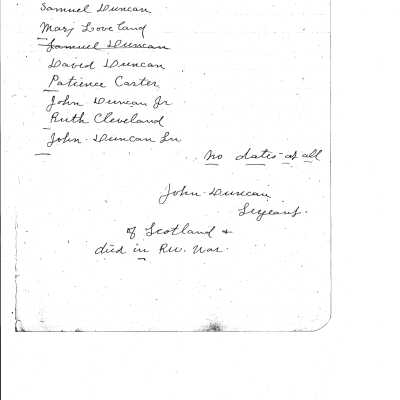 Samuel Duncan
Mary Loveland
Samuel Duncan
David Duncan
Patience Carter
John Duncan Jr
Ruth Cleveland
John Duncan Sr
no dates at all
John Duncan
Sergeant.
of Scotland &
died in Rev. War.